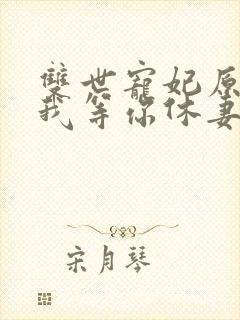 雙世寵妃原
我等你休妻
宋月琴